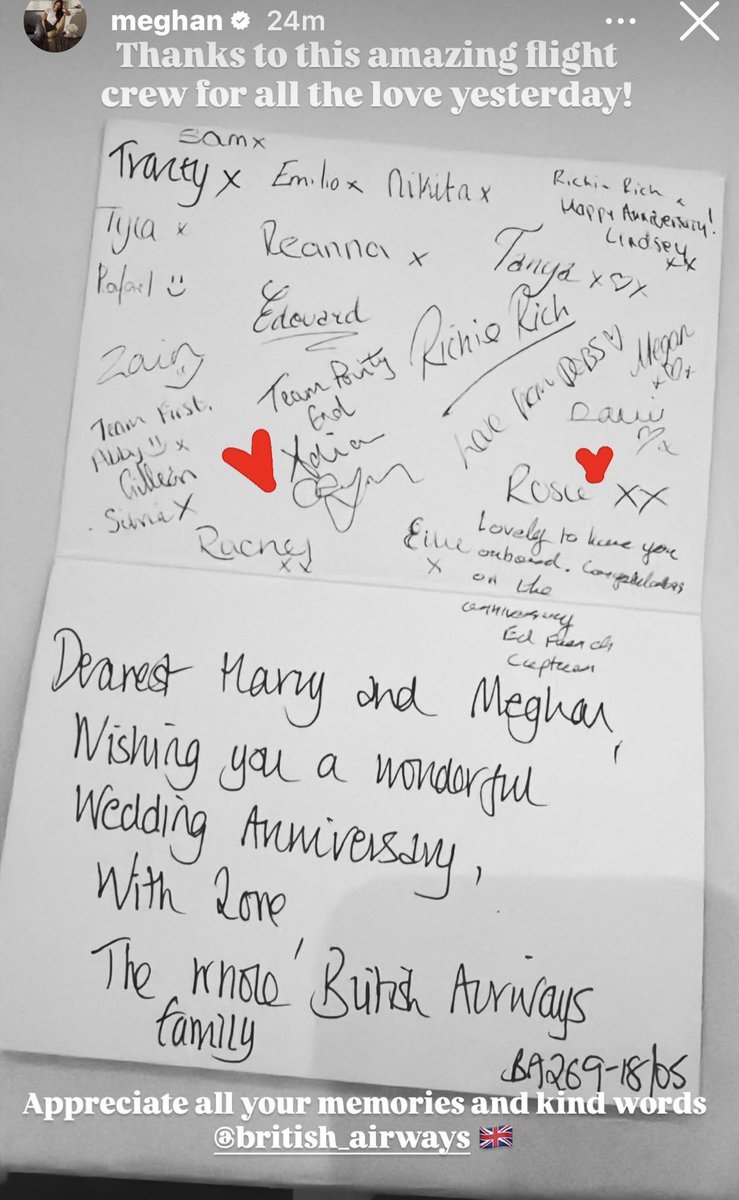 meghan 24m ...
Thanks to this amazing flight
crew for all the love yesterday!
Sam x
Tracey x Emilio x Nikita x
Richie Rich x
Happy Anniversary!
Lindsey
xx
Tyla x
Reanna x
Tanya x♡x
Rafael
Edouard
Richie Rich
Megan
x♡x
Zain
Team Party
End
Love from DEBS♡
Team First.
Abby x
Gillean
Silvia X
Rosie XX
Rachel
xx
Ellie
x
Lovely to have you
onboard. Congratulations
on the
anniversary
Ed French
Captain
Dearest Harry and Meghan,
Wishing you a wonderful
Wedding Anniversary,
With Love,
The whole British Airways
family
BA269-18/05
Appreciate all your memories and kind words
@british_airways 🇬🇧